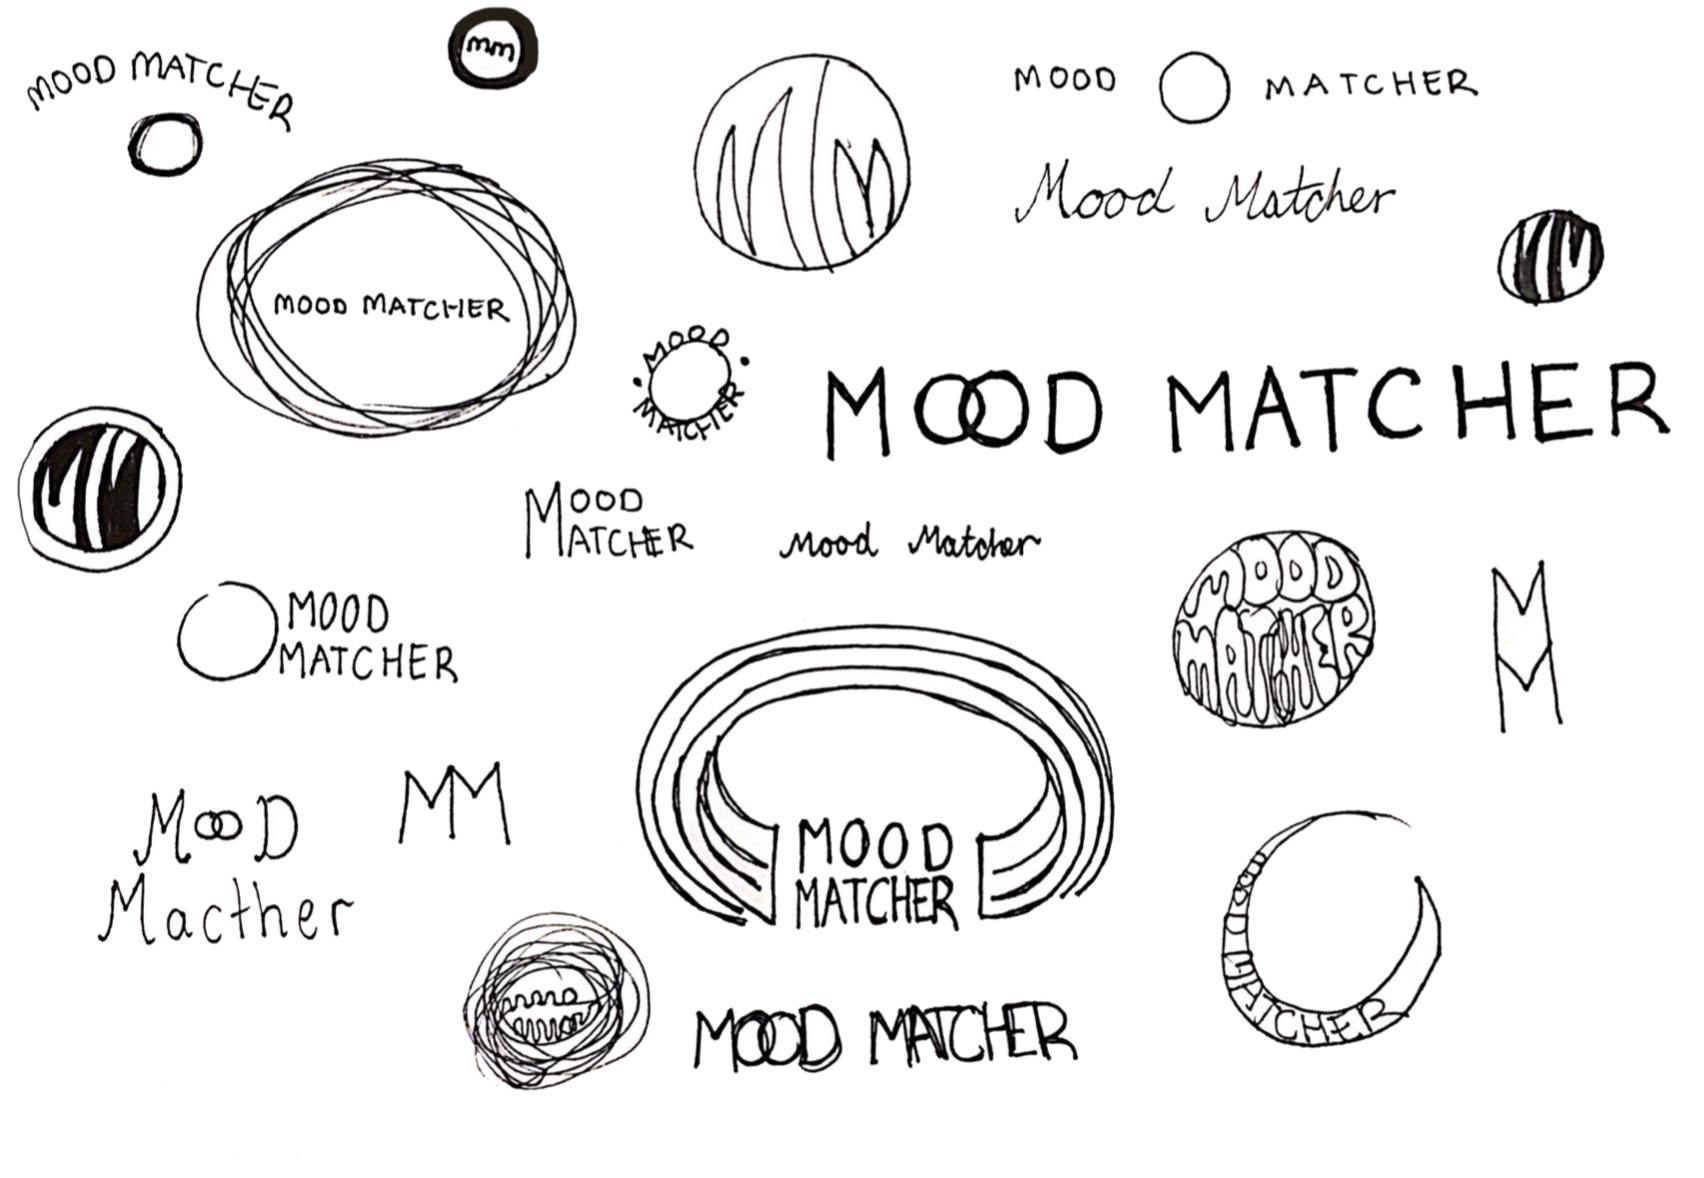 MOOD MATCHER
mm
MM
MOOD MATCHER
Mood Matcher
MM
MOOD MATCHER
MOOD
MATCHER
MOOD MATCHER
MM
MOOD
MATCHER
Mood Matcher
MOOD
MATCHER
MOOD
MATCHER
M
M
MOOD
MATCHER
MOOD
Macther
MM
MOOD MATCHER
MOOD MATCHER